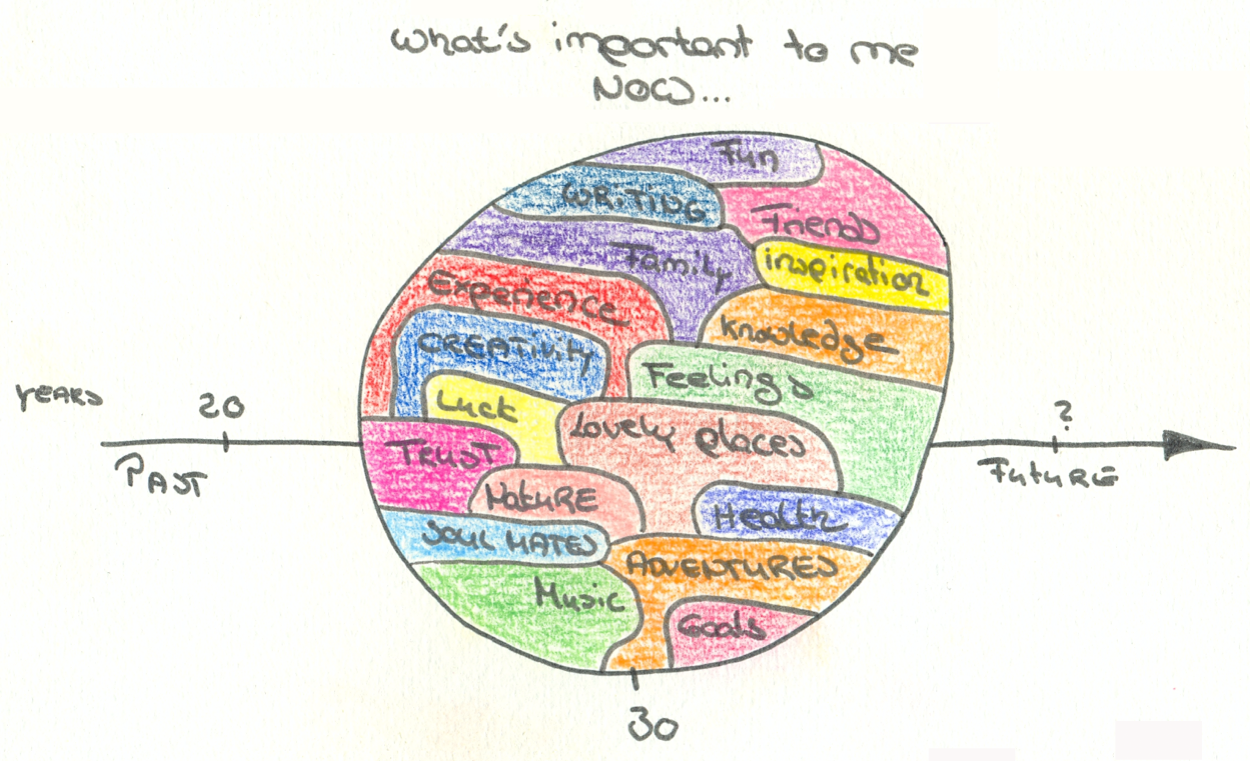 What's important to me
NOW...
Fun
WRiTiNG
Friends
Family
inspiration
Experience
knowledge
CREATivity
Feelings
Luck
Lovely places
TRUST
NatuRE
Health
SOUL MATES
ADVENTURES
Music
Goals
YEARS
20
?
PAST
FutuRE
30